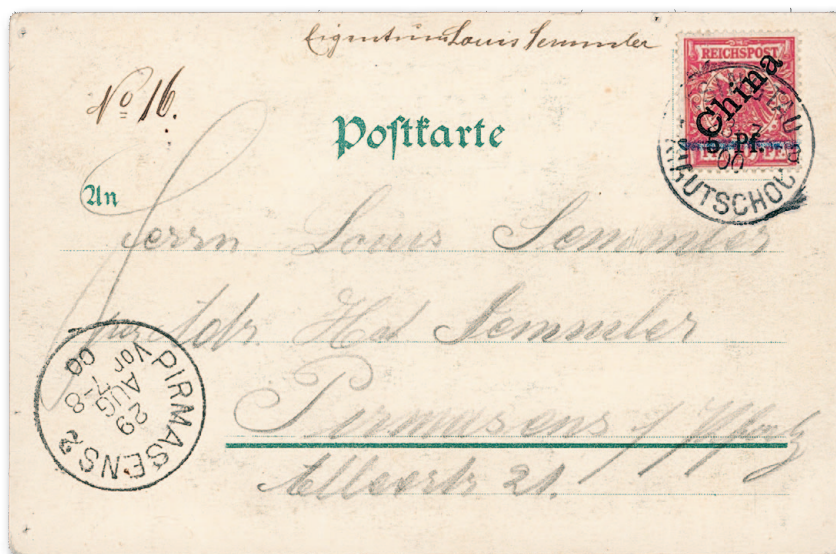 Eigentum Louis Semmler
No 16.
REICHSPOST
China
5 Pf.
KIAUTSCHOU
00
Postkarte
An
Herrn Louis Semmler
per Adr. Semmler
Pirmasens / Pfalz
21.
PIRMASENS 2
29
AUG
7-8
Vor
00